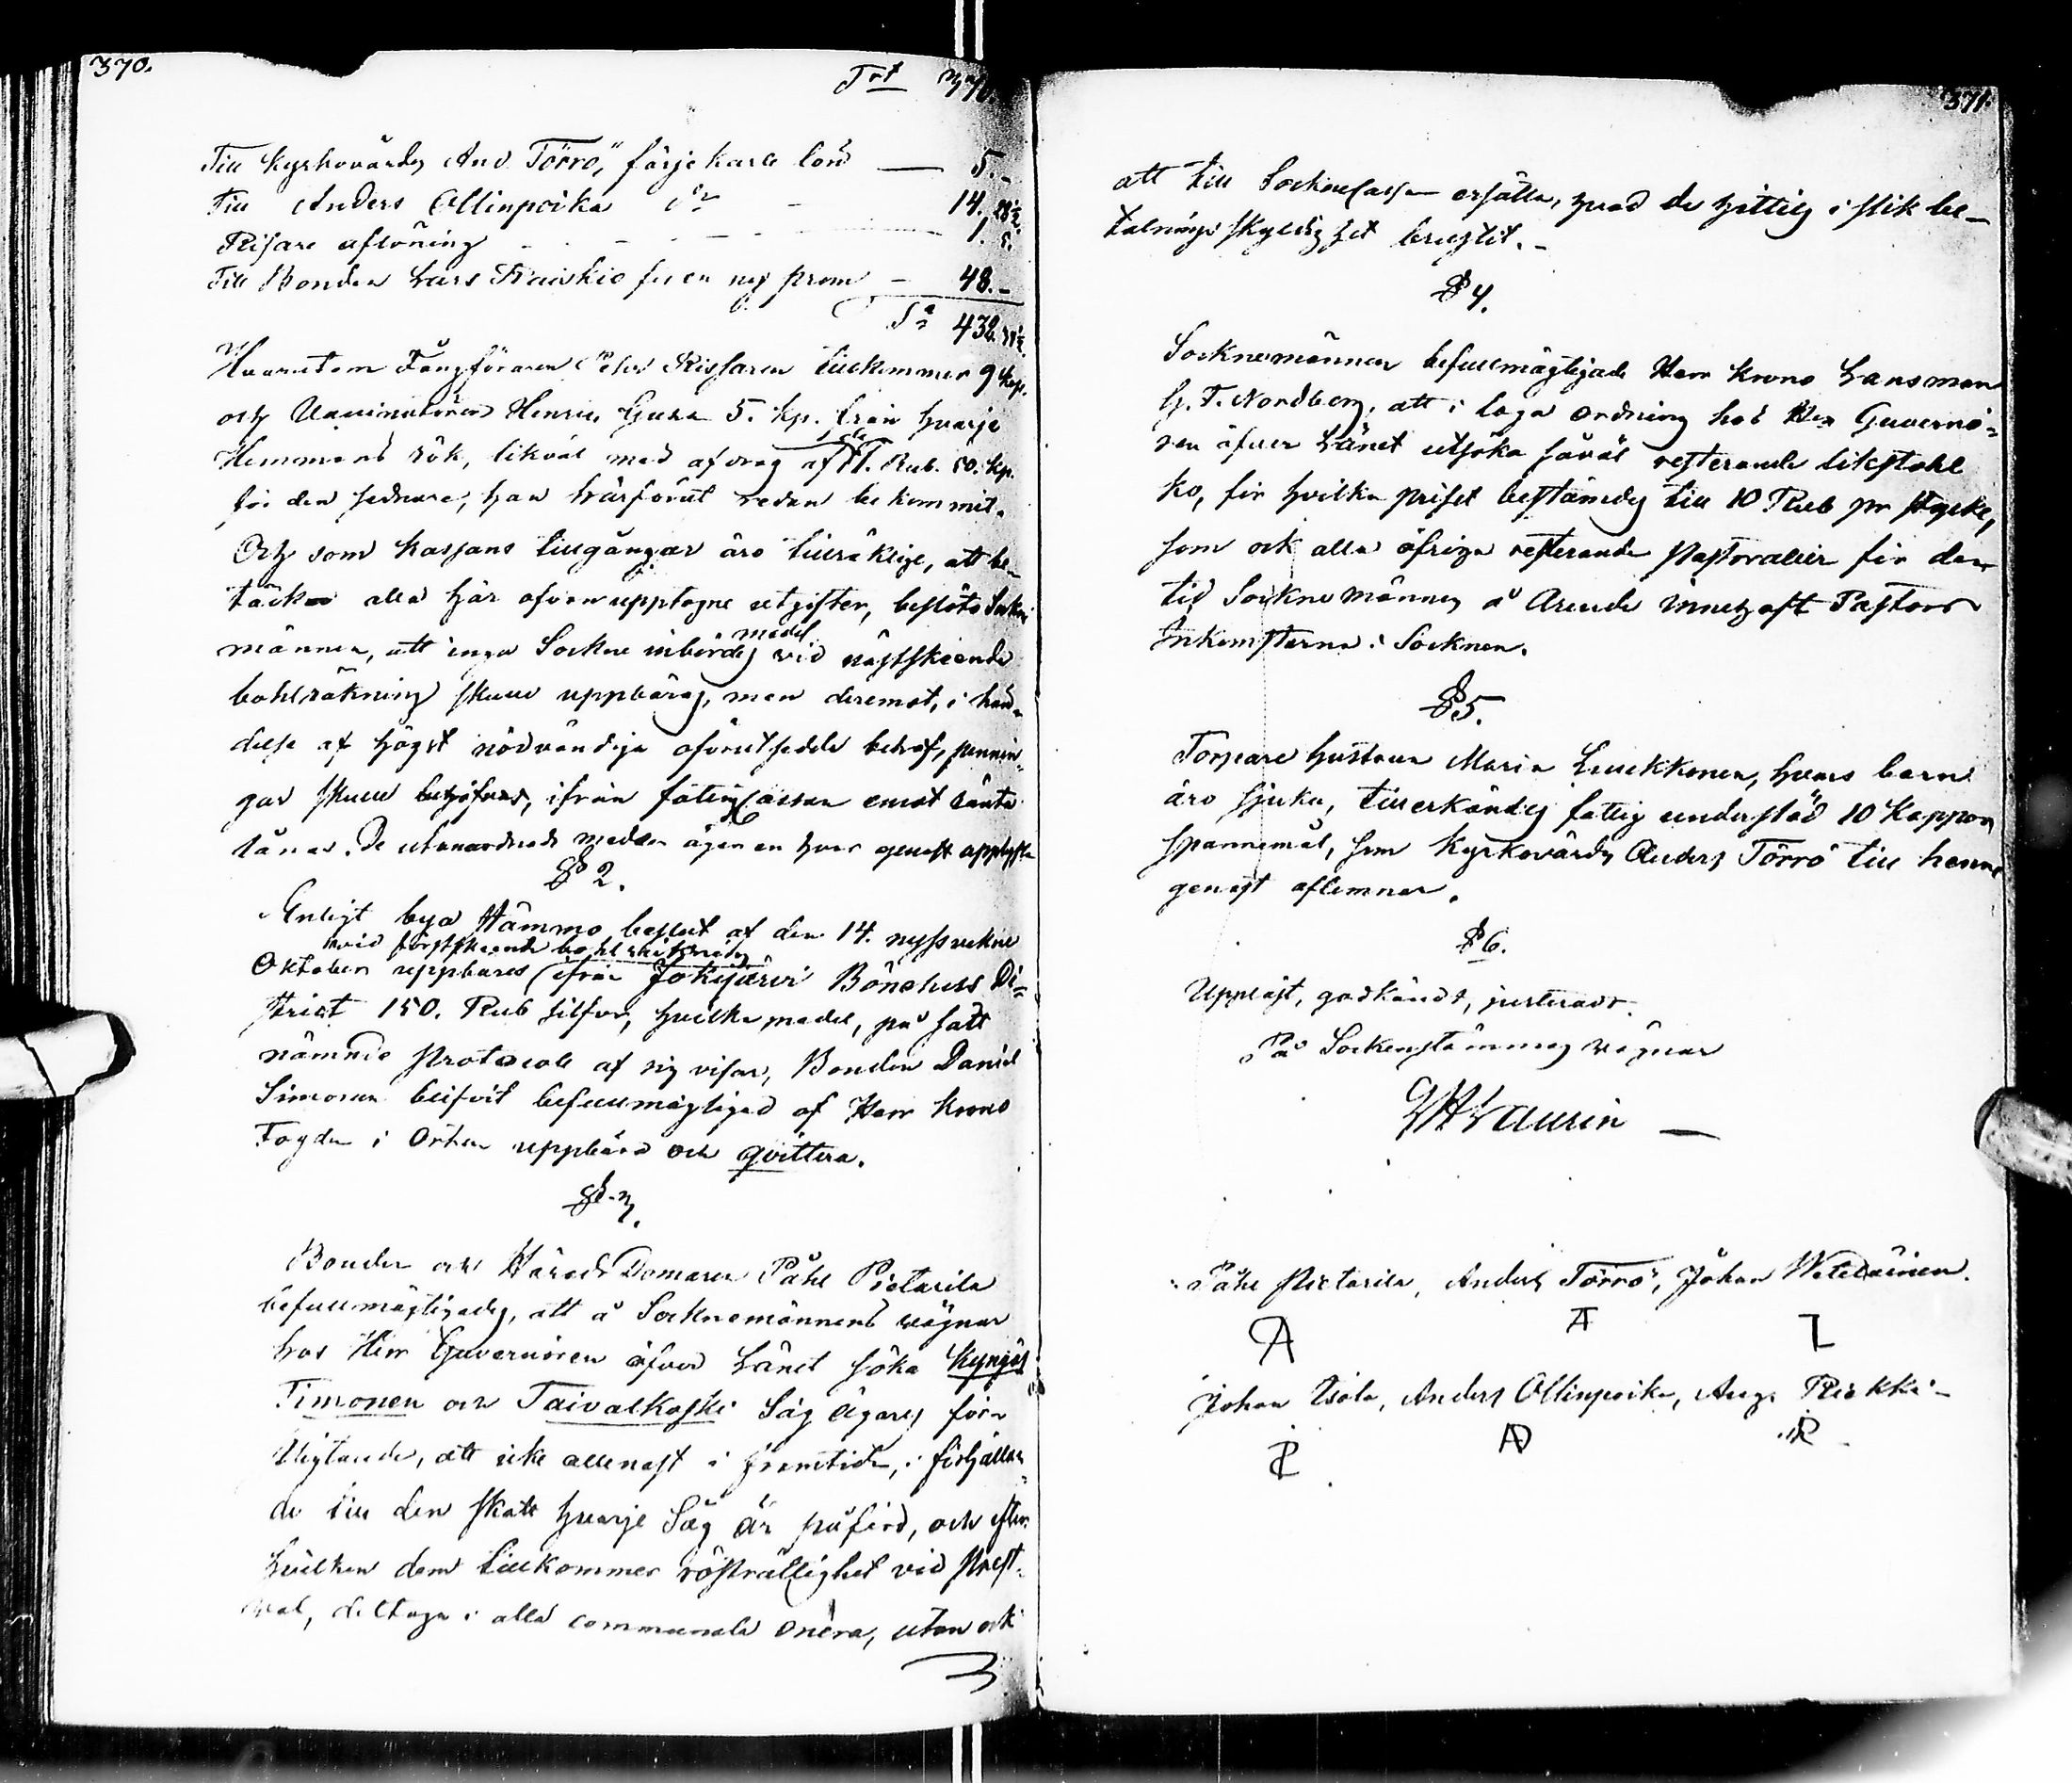 370.
Trt 370
Till Kyrkovärden And Törrö, färjekarls lön — 5.-
Till Anders Ollinpoika do - 14. 28½
Risare aflöning - - - - 1. 5.
Till Bonden Lars Traiskio för en ny pram - 48.-
Sa 432.
Hvarutom Fångföraren Petter Rissanen tillkommer 9 kop.
och Vaccinatören Henric Gura 5. kp. från hvarje
Hemmans rök, likväl med afdrag af 11. Rub. 50. kp.
för den sednare, han härförut redan bekommit.
Och som kassans tillgångar äro tillräklige, att be-
täcka alla här ofvan upptagne utgifter, beslöto Sockne
männen, att inga Sockne inbördes medel vid nästskeende
bohlräkning skulle uppbäras, men deremot, i hän-
delse af högst nödvändiga oförutsedde behof, pennin-
gar skulle behöfvas, ifrån fattigCassan emot ränta
lånas. De utanordnade medlen ägen en hvar genast upplyfta
§ 2.
Enligt bya Stämmo beslut af den 14. nyssvekne
vid förstskeende bohlräkning
Oktober uppbäres ifrån Jokijärvi Bönehuss Di-
strict 150. Rub silfver, hvilka medel, på sätt
nämnde Protocoll af sig visar, Bonden Daniel
Simonen blifvit befullmägtigad af Herr Krono
Fogden i Orten uppbära och qvittera.
§ 3.
Bonden och Härads Domaren Påhl Pietarila
befullmägtigades, att å Socknemännens vägnar
hos Herr Guvernören öfver Länet söka Kynsjö
Timonen och Taivalkoski Såg ägares för-
pligtande, att icke allenast i framtiden, i förhållan-
de till den skatt hvarje Såg är påförd, och efter
hvilken dem tillkommer rösträttighet vid Prest-
val, deltaga i alla communala onera, utan ock
371.
att till Sockne Cassan ersätta, hvad de hittils i slik be-
talnings skyldighet brustit.-
§ 4.
Socknemännen befullmägtigade Herr Krono Länsman
G. F. Nordberg, att i laga ordning hos Herr Guvernö-
ren öfver Länet utsöka såväl resterande likstohl
ko, för hvilka priset bestämdes till 10 Rub pr stycke,
som ock alla öfriga resterande Pastoralier för den
tid Sockne männen å Arende innehaft Pastors
Inkomsterna i Socknen.
§ 5.
Torpare hustrun Maria Luukkonen, hvars barn
äro sjuka, tillerkändes fattig understöd 10 Kappar
Spannemål, som Kyrkovärden Anders Törrö till henne
genast aflemnar.
§ 6.
Uppläst, godkändt, justeradt.
På Sockenstämmans vägnar
Laurin —
Påhl Pietarila, Anders Törrö, Johan Wätäinen.
Johan Isola, Anders Ollinpoika, Aug. Riekki-